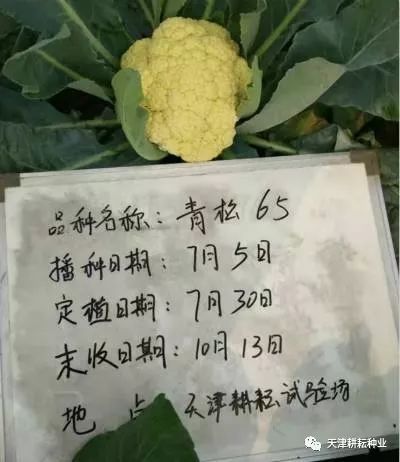 品种名称：青松 65
播种日期：7月5日
定植日期：7月30日
末收日期：10月13日
地 点：天津耕耘试验场
天津耕耘种业